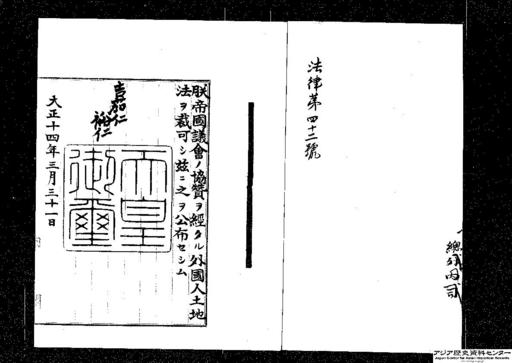 法律第四十二號
朕帝國議會ノ協贊ヲ經タル外國人土地
法ヲ裁可シ玆ニ之ヲ公布セシム
嘉仁
裕仁
天皇
御璽
大正十四年三月三十一日
アジア歴史資料センター
Japan Center for Asian Historical Records